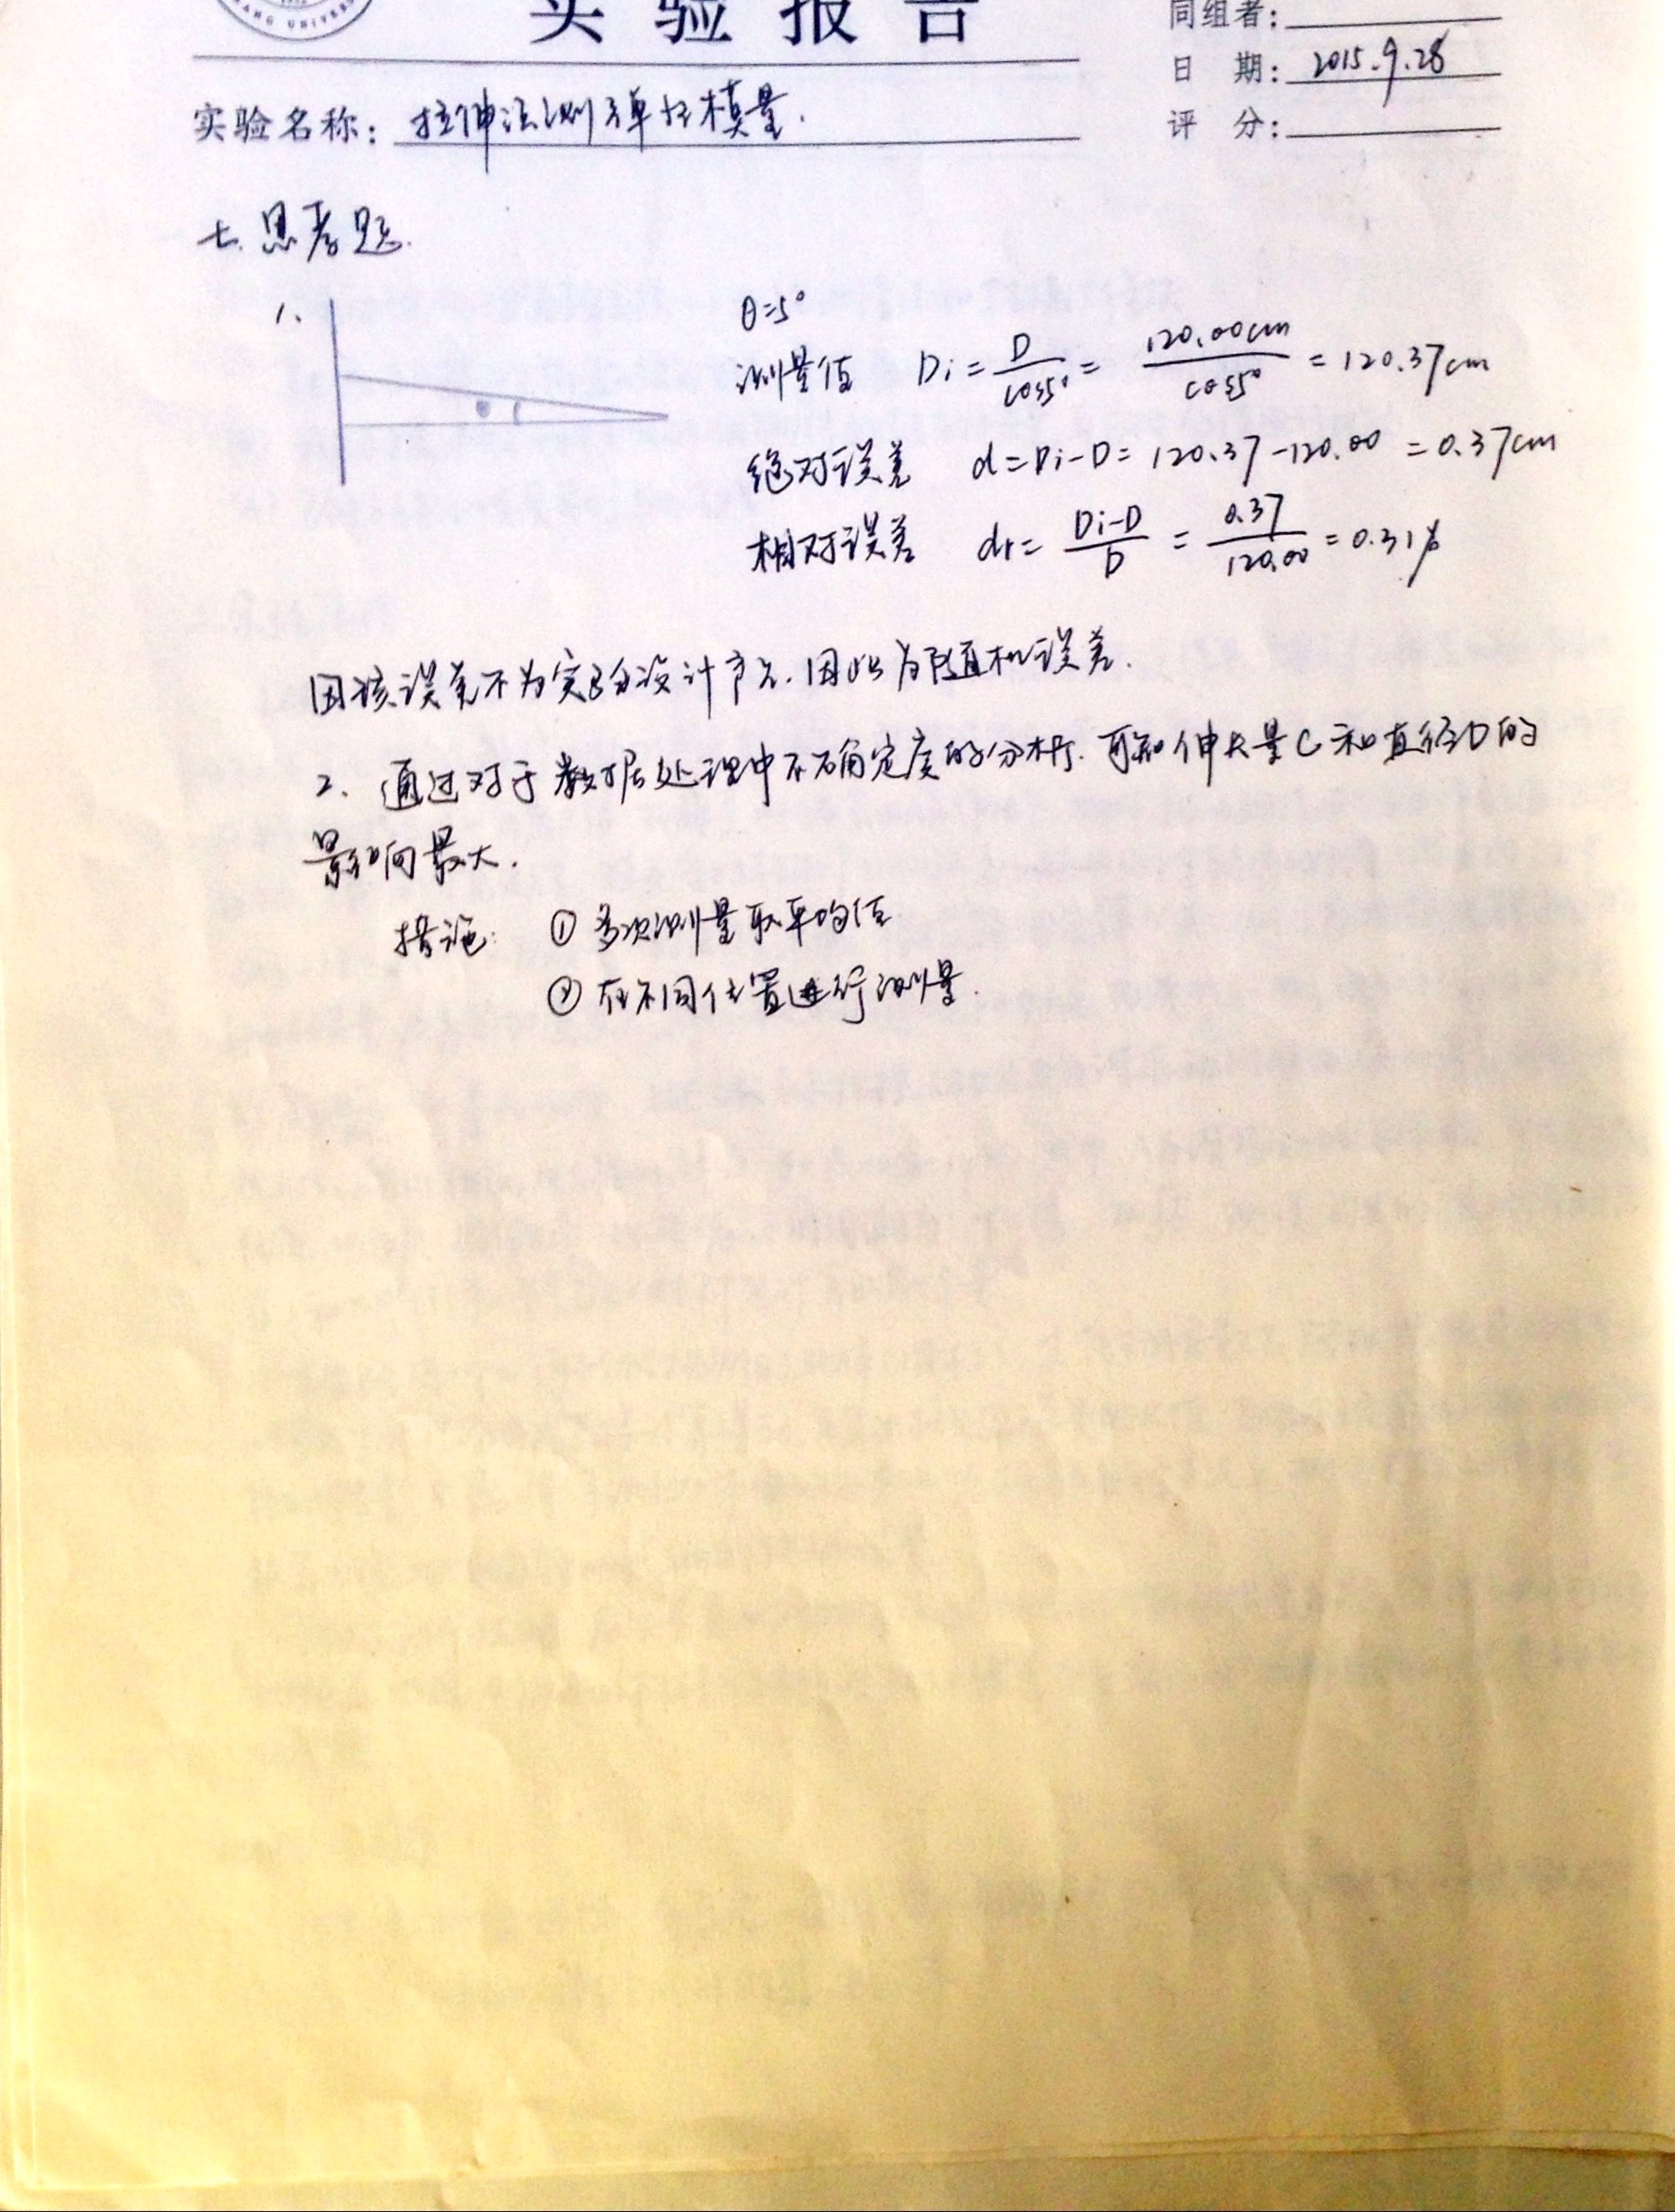 实验报告
同组者:
日 期: 2015.9.28
实验名称: 拉伸法测弹性模量.
评 分:
七.思考题.
1、
θ=5°
测量值 Di = D/cos5° = 120.00cm/cos5° = 120.37cm
绝对误差 d=Di-D= 120.37-120.00 = 0.37cm
相对误差 dr= Di-D/D = 0.37/120.00 = 0.31%
因该误差不为实验设计产生.因此为随机误差.
2、通过对于数据处理中不确定度的分析.可知伸长量C和直径D的
影响最大.
措施: ① 多次测量取平均值
② 在不同位置进行测量.